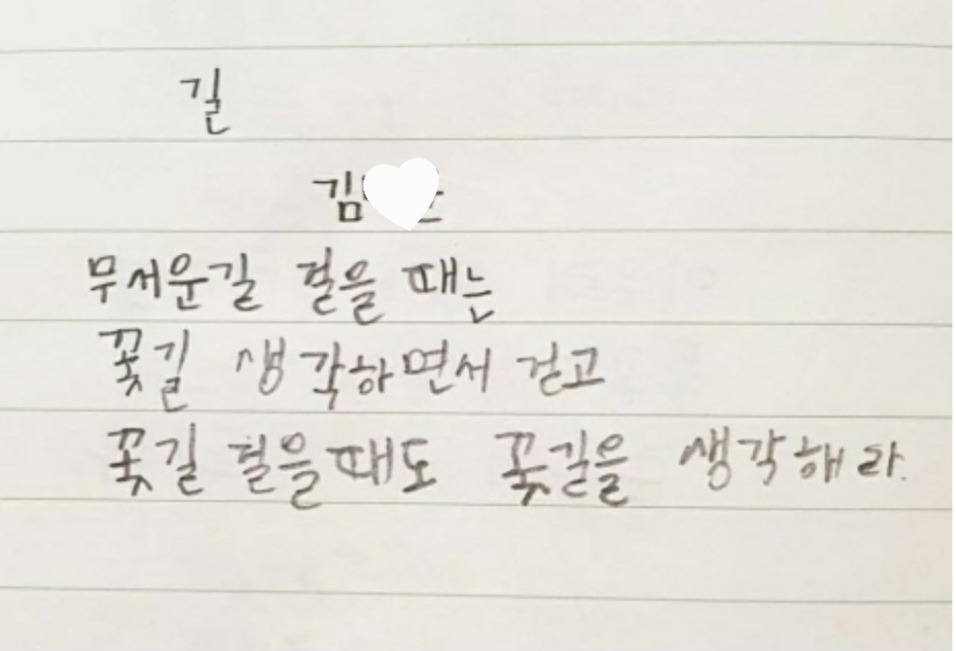 길
김
무서운길 걸을 때는
꽃길 생각하면서 걷고
꽃길 걸을때도 꽃길을 생각해라.